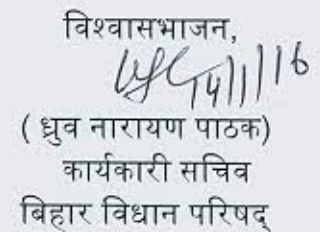 विश्वासभाजन,
14/1/16
( ध्रुव नारायण पाठक)
कार्यकारी सचिव
बिहार विधान परिषद्